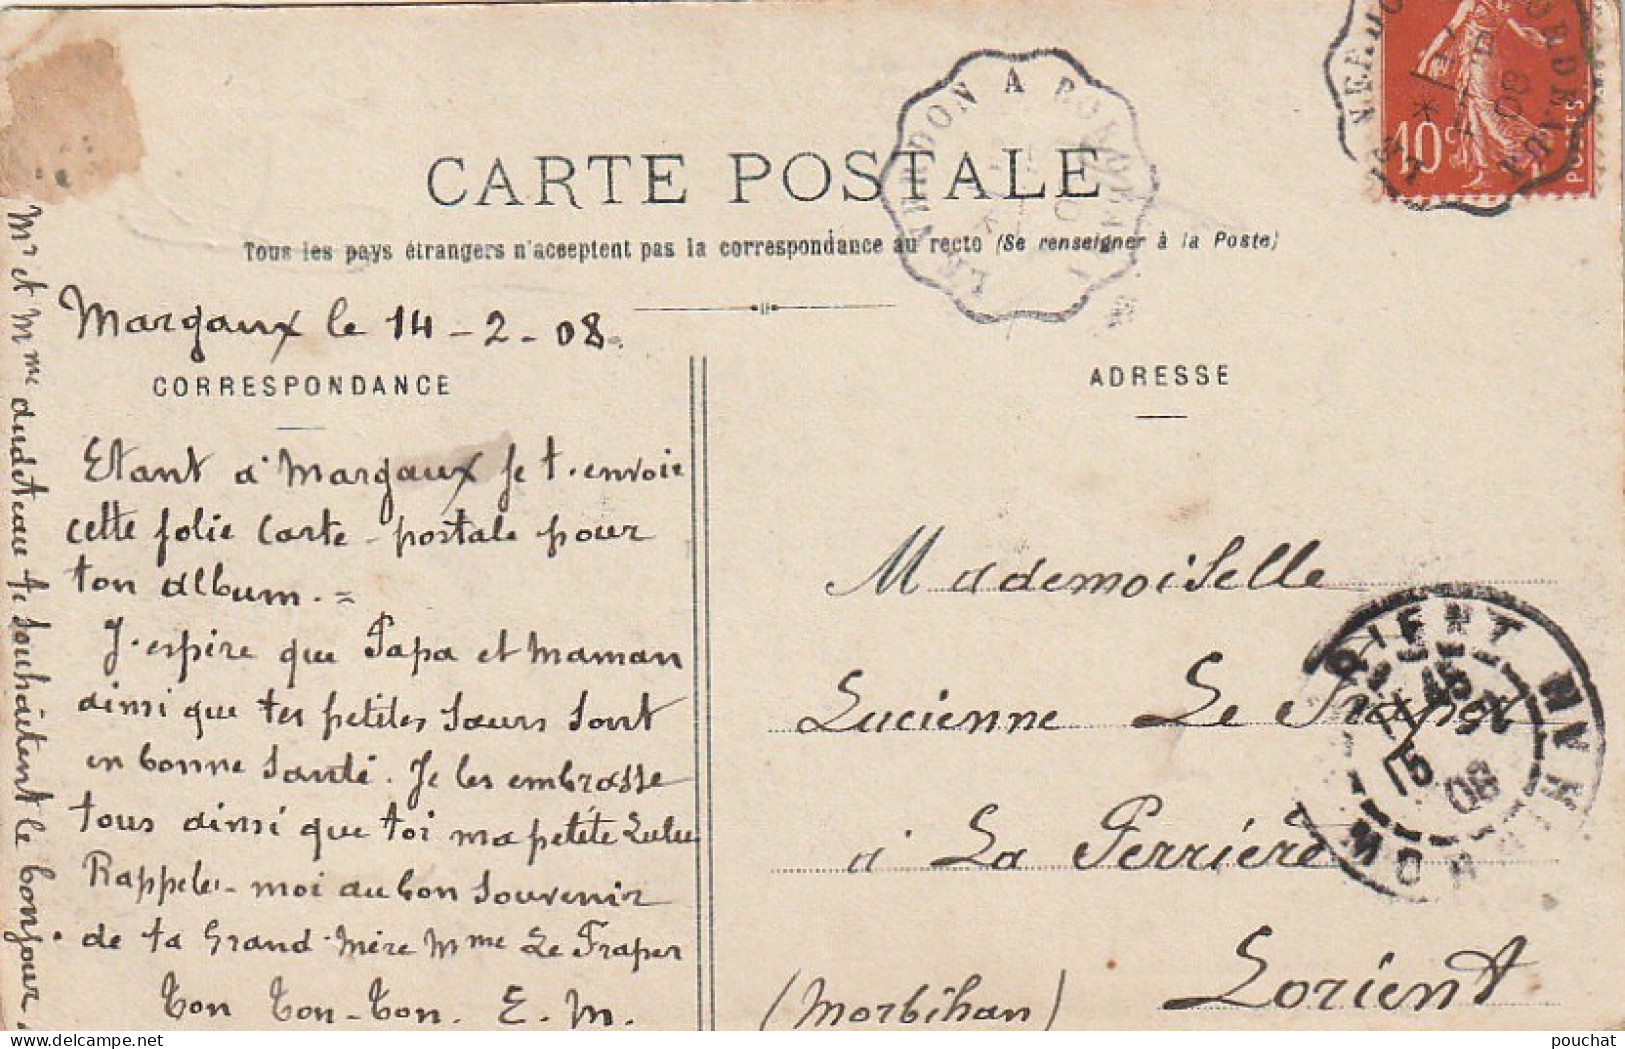 CARTE POSTALE
Tous les pays étrangers n'acceptent pas la correspondance au recto (Se renseigner à la Poste)
LE VERDON A BORDEAUX
LE VERDON BORDEAUX
08
10c
POSTES
Margaux le 14-2-08.
CORRESPONDANCE
ADRESSE
Etant à Margaux je t'envoie
cette jolie carte-postale pour
ton album. =
J'espère que Papa et maman
ainsi que tes petites soeurs sont
en bonne santé. Je les embrasse
tous ainsi que toi ma petite Lulu
Rappeles-moi au bon souvenir
de ta Grand-Mère Mme Le Fraper
Ton Ton-Ton. E. M.
Mr et Mme te souhaitent le bonjour.
Mademoiselle
Lucienne Le Fraper
à La Perrière
Lorient
(Morbihan)
LORIENT
MORBIHAN
15
08
pouchat © delcampe.net